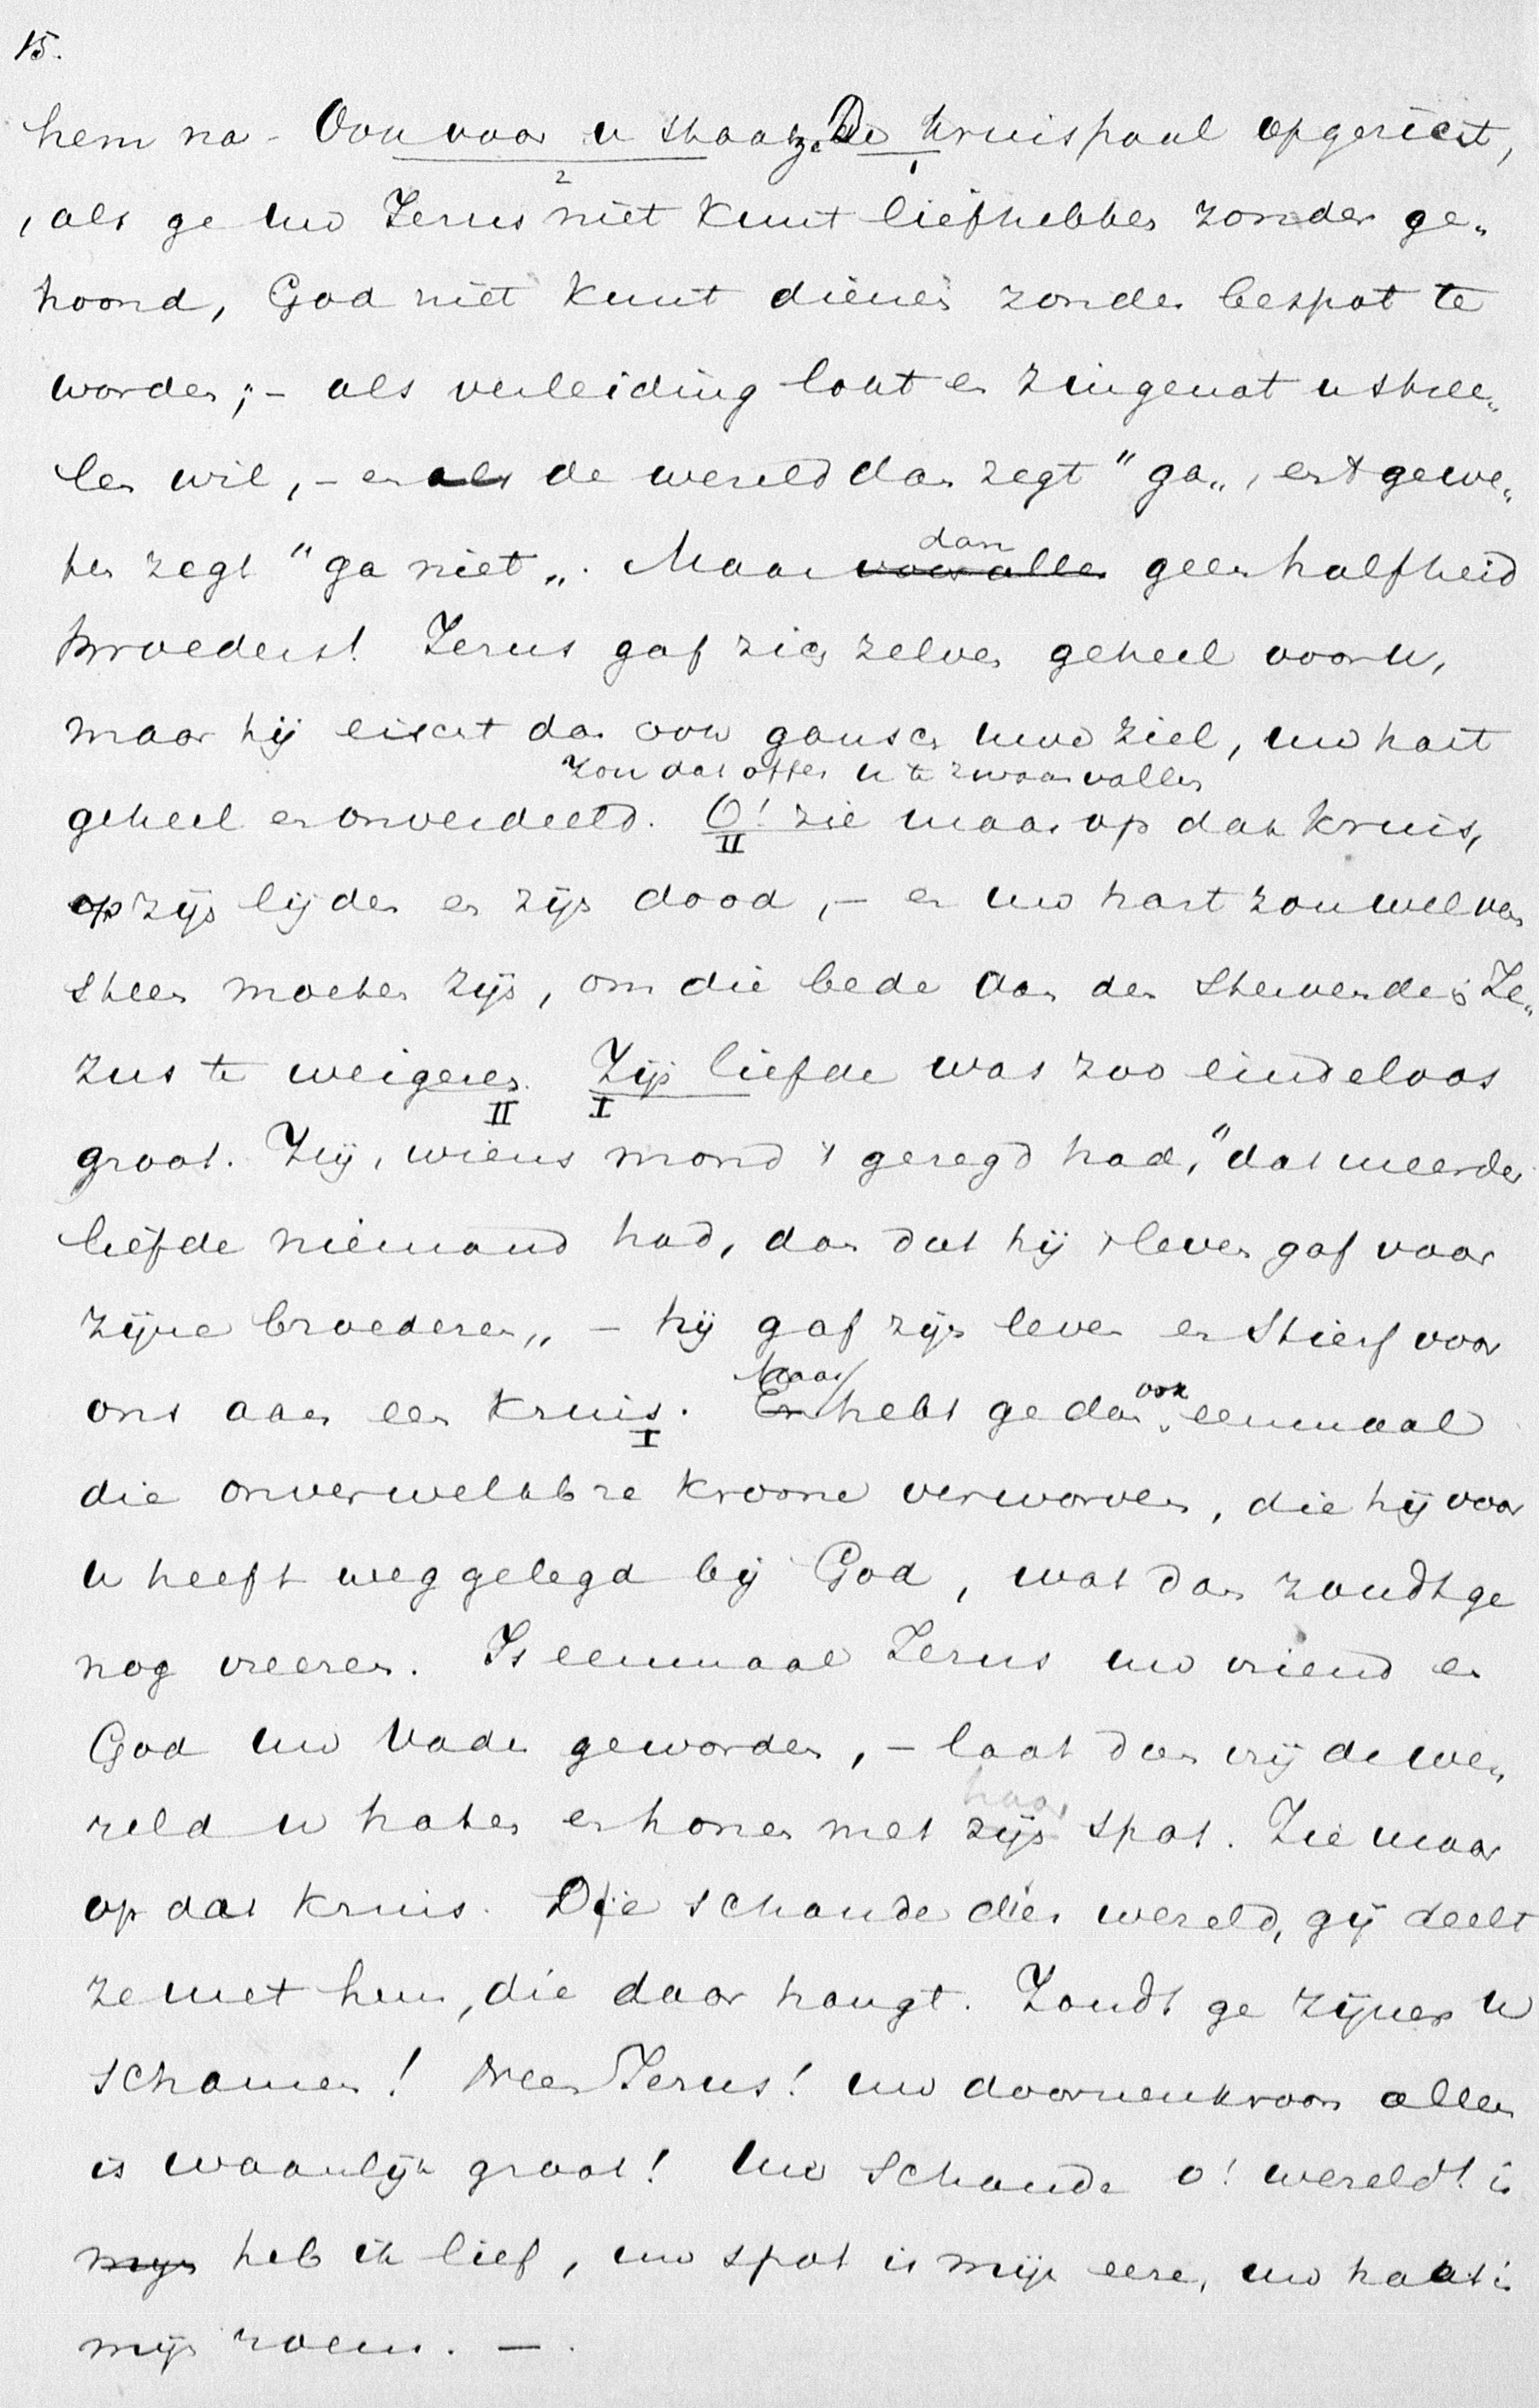 15.
hem na - Ook voor u staat z. De kruispaal opgericht,
2 1
, als ge uw Jezus niet kunt liefhebben zonder ge„
hoond, God niet kunt dienen zonder bespot te
worden; - als verleiding lokt en zingenot u stree„
len wil, - en als de wereld dan zegt "ga„, en 't gewe„
ten zegt "ga niet„. Maar voor alles geen halfheid
dan
broeders! Jezus gaf zich zelven geheel voor u,
maar hij eischt dan ook gansch uwe ziel, uw hart
zou dat offer u te zwaar vallen
geheel en onverdeeld. O! zie maar op dat kruis,
II
op zijn lijden en zijn dood, - en uw hart zou wel van
steen moeten zijn, om die bede van den stervenden Je„
zus te weigeren. Zijn liefde was zoo eindeloos
II I
groot. Hij, wiens mond 't gezegd had, "dat meerder
liefde niemand had, dan dat hij 't leven gaf voor
zijne broederen„ - hij gaf zijn leven en stierf voor
ons aan een kruis. En hebt ge dan eenmaal
Maar ook
I
die onverwelkbre kroone verworven, die hij voor
u heeft weggelegd bij God, wat dan zoudt ge
nog vreezen. Is eenmaal Jezus uw vriend en
God uw Vader geworden, - laat dan vrij de we„
reld u haten en honen met zijn spot. Zie maar
haar
op dat kruis. Die schande dier wereld, gij deelt
ze met hem, die daar hangt. Zoudt ge zijner u
schamen! Neen Jezus! uw doornenkroon alleen
is waarlijk groot! Uw schande o! wereld! is
mijn heb ik lief, uw spot is mijn eere, uw haat is
mijn roem. -.